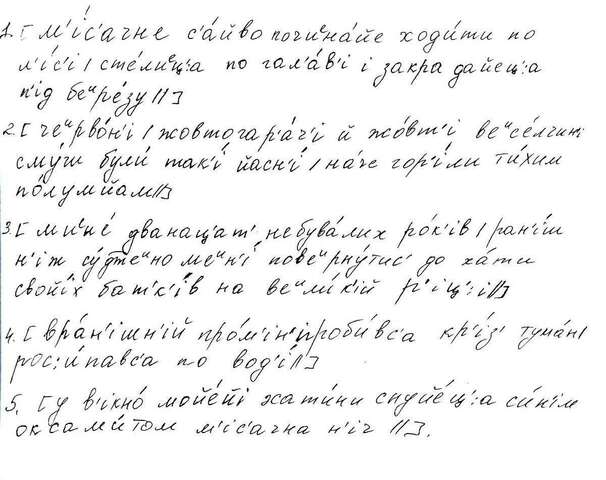 1. [ м'і́с'ачне с'а́йво почина́йе ходи́ти по
л'іс'і / сте́лиец':а по гал'а́в'і і закра дайец':а
п'ід беире́зу // ]
2. [ чеирво́н'і / жовтогар'а́ч'і й жо́вт'і веисе́лчині
сму́ги були́ так'і́ йасн'і́ / на́че гор'і́ли ти́хим
по́лумйам // ]
3. [ мине́ двана́ц'ат' небува́лих ро́к'ів / ран'і́ш
н'іж су́джеино меин'і́ повеирну́тис' до ха́ти
свойі́х бат'к'і́в на веили́к'ій р'іц':і // ]
4. [ вра́н'ішн'ій про́м'ін' проби́вс'а кр'із' тума́н /
рос:и́павс'а по вод'і́ // ]
5. [ у в'ікно́ мойе́йі хати́ни снуйе́ц':а си́н'ім
оксами́том м'іс'ачна н'іч // ].